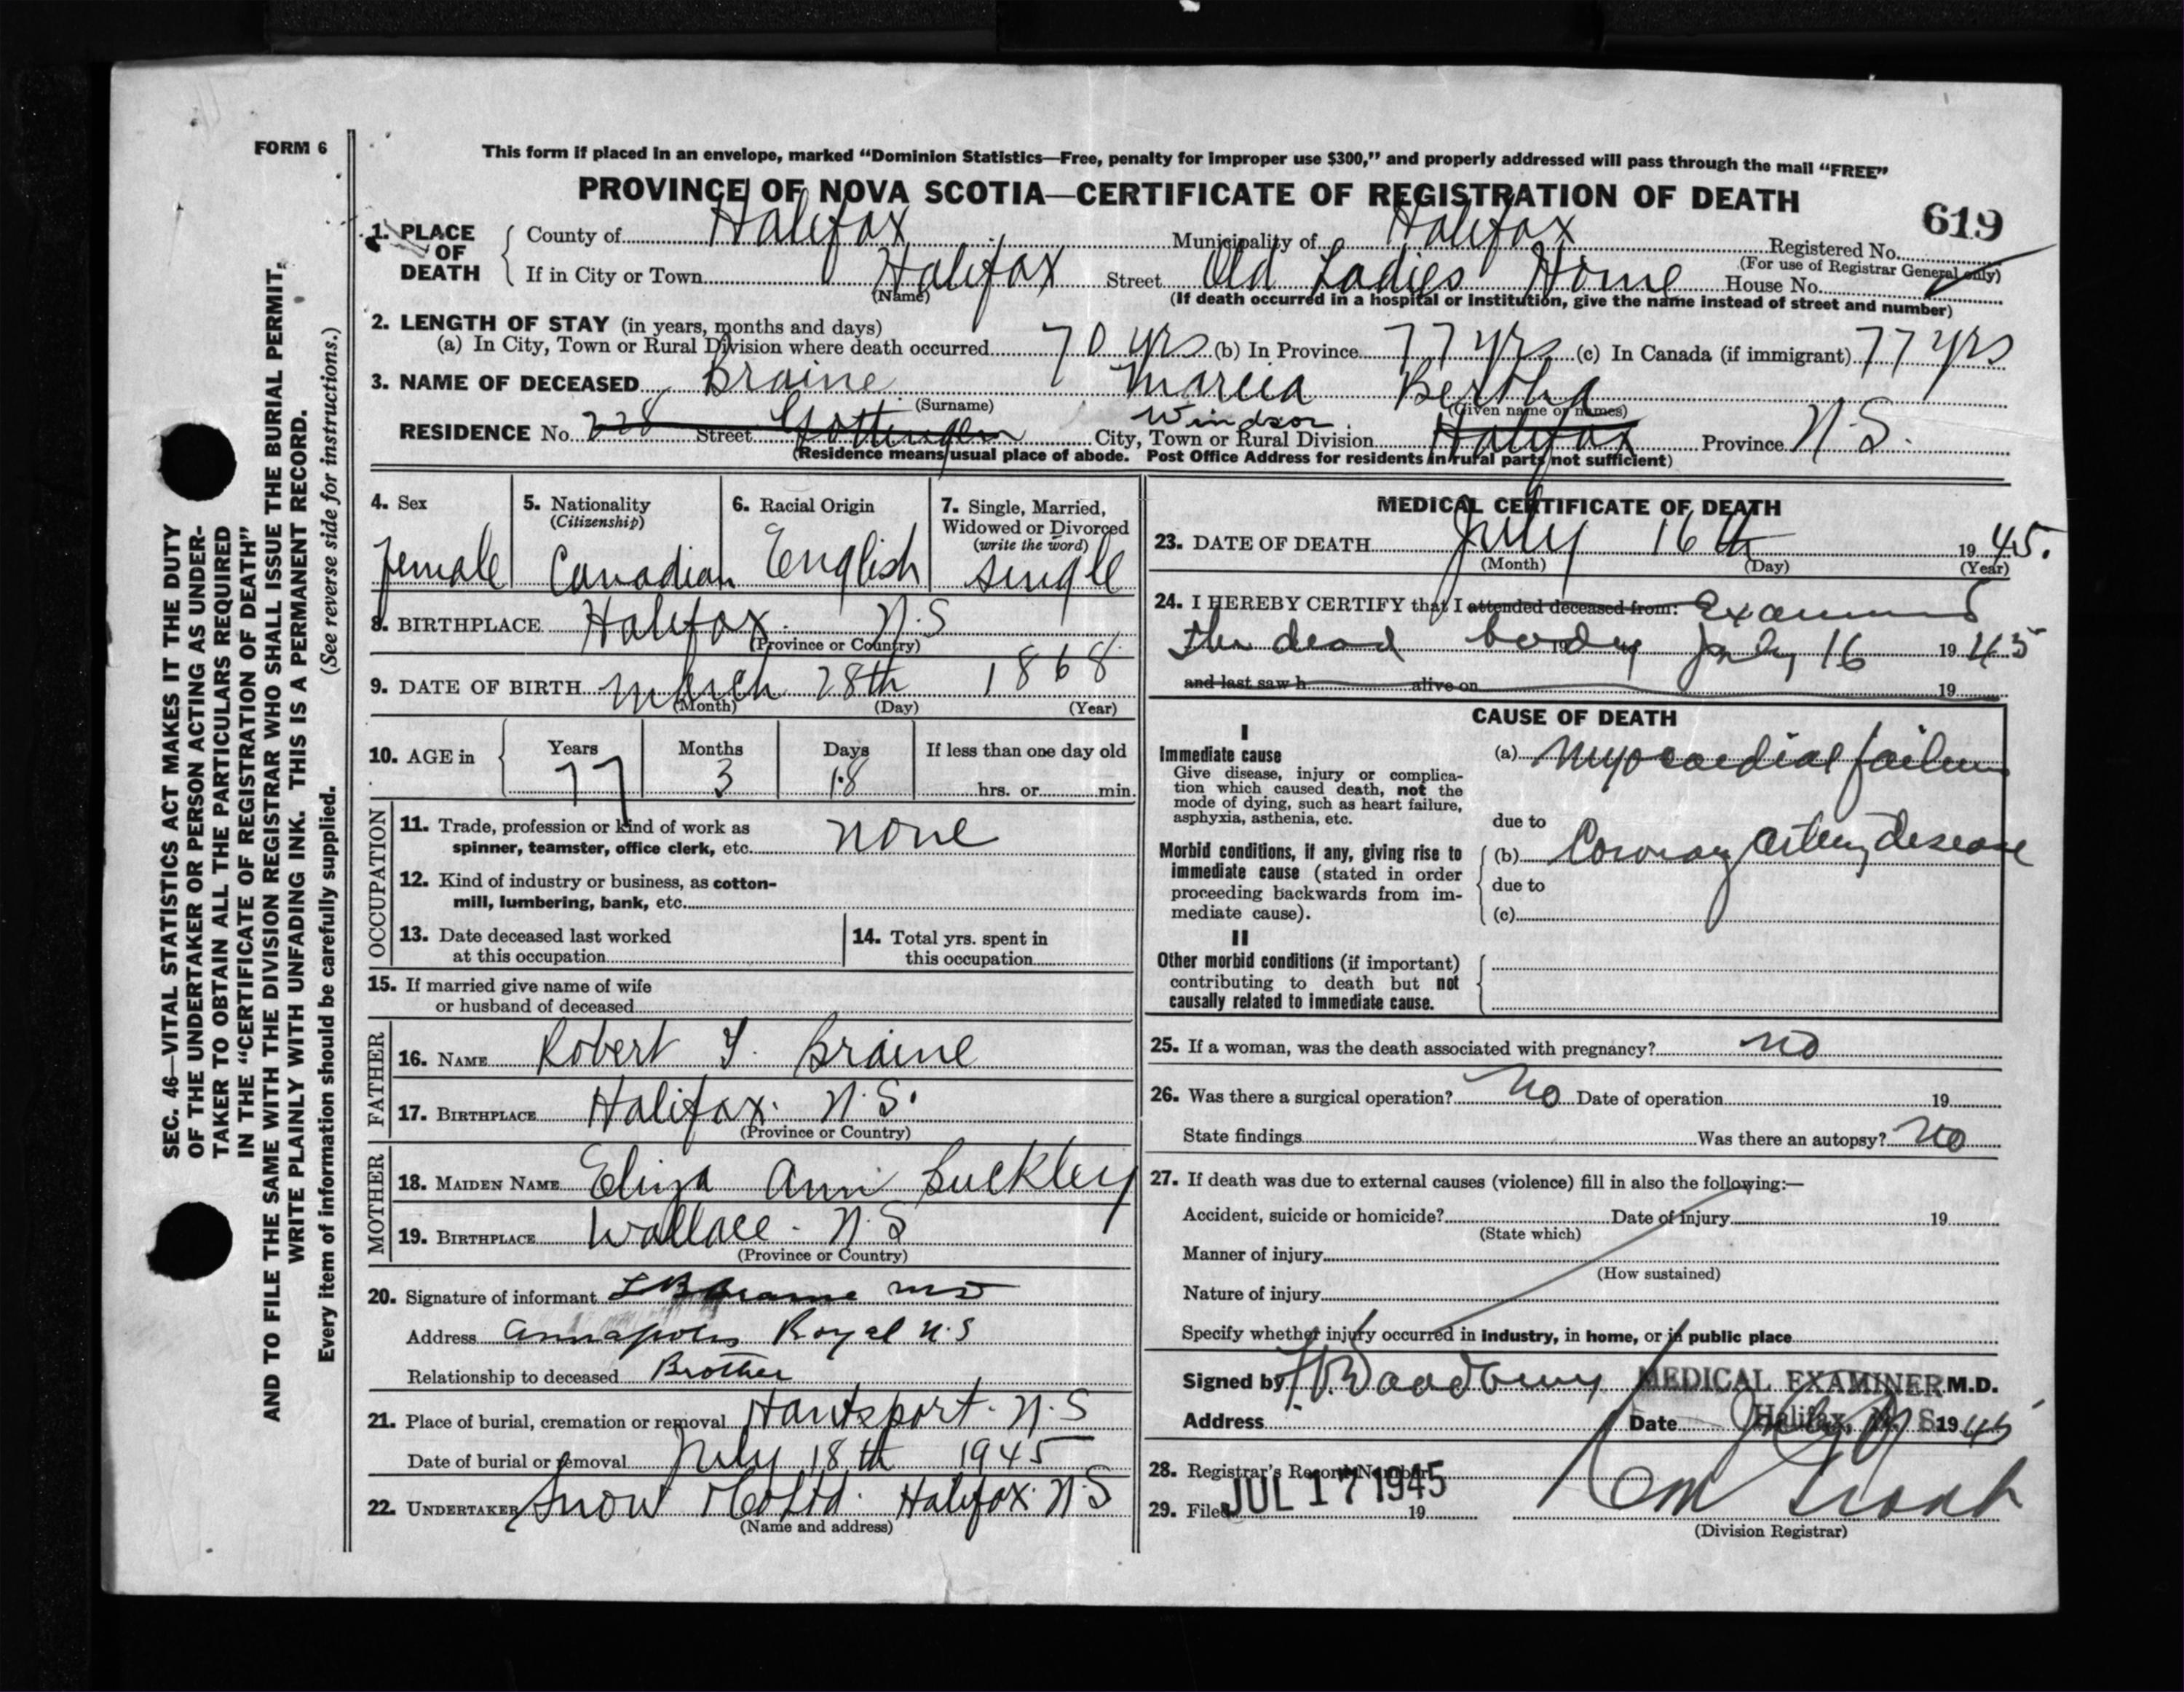 FORM 6
This form if placed in an envelope, marked “Dominion Statistics—Free, penalty for improper use $300,” and properly addressed will pass through the mail “FREE”
PROVINCE OF NOVA SCOTIA—CERTIFICATE OF REGISTRATION OF DEATH
619
1. PLACE OF DEATH
County of Halifax Municipality of Halifax Registered No.
(For use of Registrar General only)
If in City or Town Halifax Street Old Ladies Home House No.
(Name) (If death occurred in a hospital or institution, give the name instead of street and number)
2. LENGTH OF STAY (in years, months and days)
(a) In City, Town or Rural Division where death occurred 70 yrs (b) In Province 77 yrs (c) In Canada (if immigrant) 77 yrs
3. NAME OF DECEASED Braine Marcia Bertha
(Surname) (Given name or names)
Windsor
RESIDENCE No. 228 Street Gottingen City, Town or Rural Division Halifax Province N.S.
(Residence means usual place of abode. Post Office Address for residents in rural parts not sufficient)
4. Sex
female
5. Nationality
(Citizenship)
Canadian
6. Racial Origin
English
7. Single, Married,
Widowed or Divorced
(write the word)
single
8. BIRTHPLACE Halifax. N.S
(Province or Country)
9. DATE OF BIRTH March 28th 1868
(Month) (Day) (Year)
10. AGE in
Years Months Days If less than one day old
77 3 18 hrs. or min.
OCCUPATION
11. Trade, profession or kind of work as
spinner, teamster, office clerk, etc. none
12. Kind of industry or business, as cotton-
mill, lumbering, bank, etc.
13. Date deceased last worked
at this occupation
14. Total yrs. spent in
this occupation
15. If married give name of wife
or husband of deceased
FATHER
16. NAME Robert Braine
17. BIRTHPLACE Halifax. N.S.
(Province or Country)
MOTHER
18. MAIDEN NAME Eliza Ann Buckley
19. BIRTHPLACE Wallace - N.S
(Province or Country)
20. Signature of informant L B Braine MD
Address Annapolis Royal N.S
Relationship to deceased Brother
21. Place of burial, cremation or removal Hantsport. N.S
Date of burial or removal July 18th 1945
22. UNDERTAKER Snow & Co Ltd. Halifax. N.S
(Name and address)
MEDICAL CERTIFICATE OF DEATH
23. DATE OF DEATH July 16th 1945.
(Month) (Day) (Year)
24. I HEREBY CERTIFY that I attended deceased from: Examined
the dead body July 16 1945
and last saw h alive on 19
CAUSE OF DEATH
I
Immediate cause
Give disease, injury or complica-
tion which caused death, not the
mode of dying, such as heart failure,
asphyxia, asthenia, etc.
(a) Myocardial failure
due to
Morbid conditions, if any, giving rise to
immediate cause (stated in order
proceeding backwards from im-
mediate cause).
(b) Coronary artery disease
due to
(c)
II
Other morbid conditions (if important)
contributing to death but not
causally related to immediate cause.
25. If a woman, was the death associated with pregnancy? no
26. Was there a surgical operation? No Date of operation 19
State findings Was there an autopsy? No
27. If death was due to external causes (violence) fill in also the following:—
Accident, suicide or homicide? Date of injury 19
(State which)
Manner of injury
(How sustained)
Nature of injury
Specify whether injury occurred in industry, in home, or in public place
Signed by Woodbury MEDICAL EXAMINER M.D.
Address Date Halifax, N. S. 1945
28. Registrar's Record Number
29. Filed JUL 17 1945 19
(Division Registrar)
SEC. 46—VITAL STATISTICS ACT MAKES IT THE DUTY
OF THE UNDERTAKER OR PERSON ACTING AS UNDER-
TAKER TO OBTAIN ALL THE PARTICULARS REQUIRED
IN THE “CERTIFICATE OF REGISTRATION OF DEATH”
AND TO FILE THE SAME WITH THE DIVISION REGISTRAR WHO SHALL ISSUE THE BURIAL PERMIT.
WRITE PLAINLY WITH UNFADING INK. THIS IS A PERMANENT RECORD.
Every item of information should be carefully supplied. (See reverse side for instructions.)